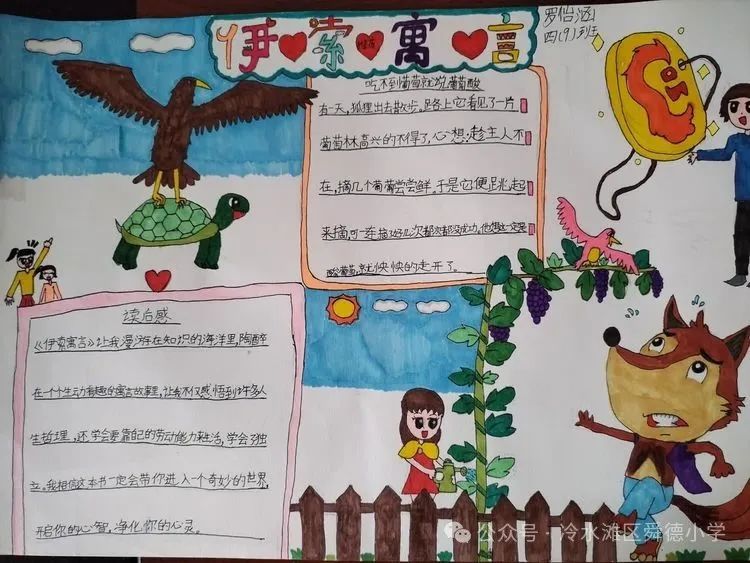 伊索寓言
罗怡涵
四(9)班
吃不到葡萄就说葡萄酸
有一天,狐狸出去散步。路上它看见了一片
葡萄林高兴的不得了,心想:趁主人不
在,摘几个葡萄尝尝鲜。于是它便跳起
来摘,可一连摘了好几次都没成功,他想这一定是
酸葡萄,就怏怏的走开了。
读后感
《伊索寓言》让我漫游在知识的海洋里,陶醉
在一个个生动有趣的寓言故事里,让我不仅感悟到许多人
生哲理,还学会要靠自己的劳动能力来生活,学会了独
立。我相信这本书一定会带你进入一个奇妙的世界,
开启你的心智,净化你的心灵。
公众号·冷水滩区舜德小学